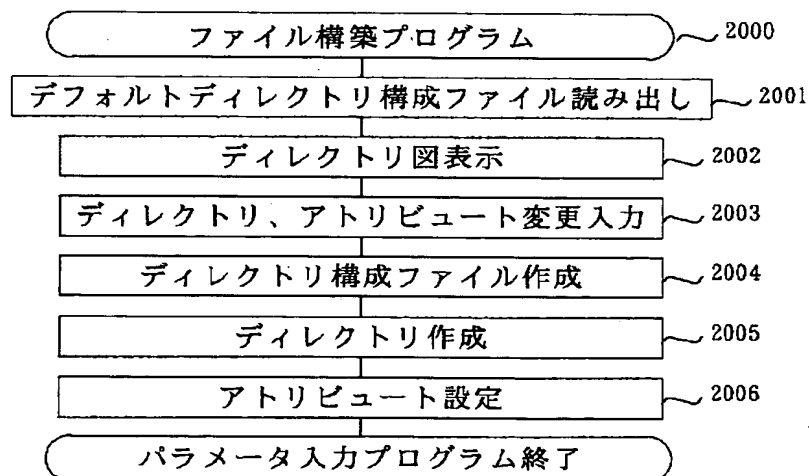 ファイル構築プログラム
2000
デフォルトディレクトリ構成ファイル読み出し
2001
ディレクトリ図表示
2002
ディレクトリ、アトリビュート変更入力
2003
ディレクトリ構成ファイル作成
2004
ディレクトリ作成
2005
アトリビュート設定
2006
パラメータ入力プログラム終了